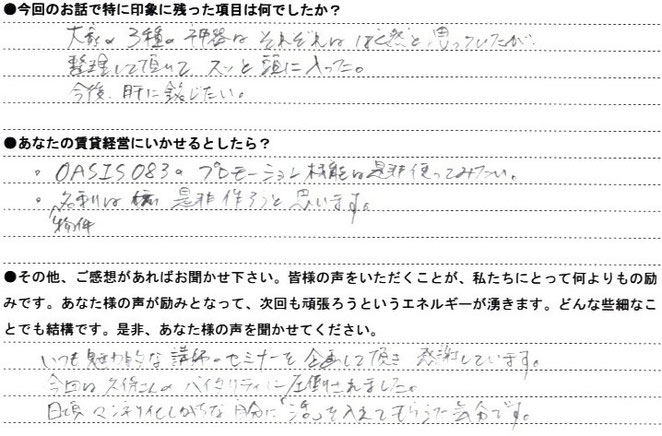 ●今回のお話で特に印象に残った項目は何でしたか？
大家の3種の神器は それぞれは 漠然と思っていたが、
整理して頂いて、スッと頭に入った。
今後、肝に銘じたい。
●あなたの賃貸経営にいかせるとしたら？
・OASIS083の プロモーション機能は是非使ってみたい。
・名刺は 是非作ろうと思います。
物件
●その他、ご感想があればお聞かせ下さい。皆様の声をいただくことが、私たちにとって何よりもの励
みです。あなた様の声が励みとなって、次回も頑張ろうというエネルギーが湧きます。どんな些細なこ
とでも結構です。是非、あなた様の声を聞かせてください。
いつも魅力的な講師のセミナーを企画して頂き 感謝しています。
今回は 久保さんの バイタリティに圧倒されました。
日頃 マンネリ化しがちな自分に「活」を入れてもらった気分です。